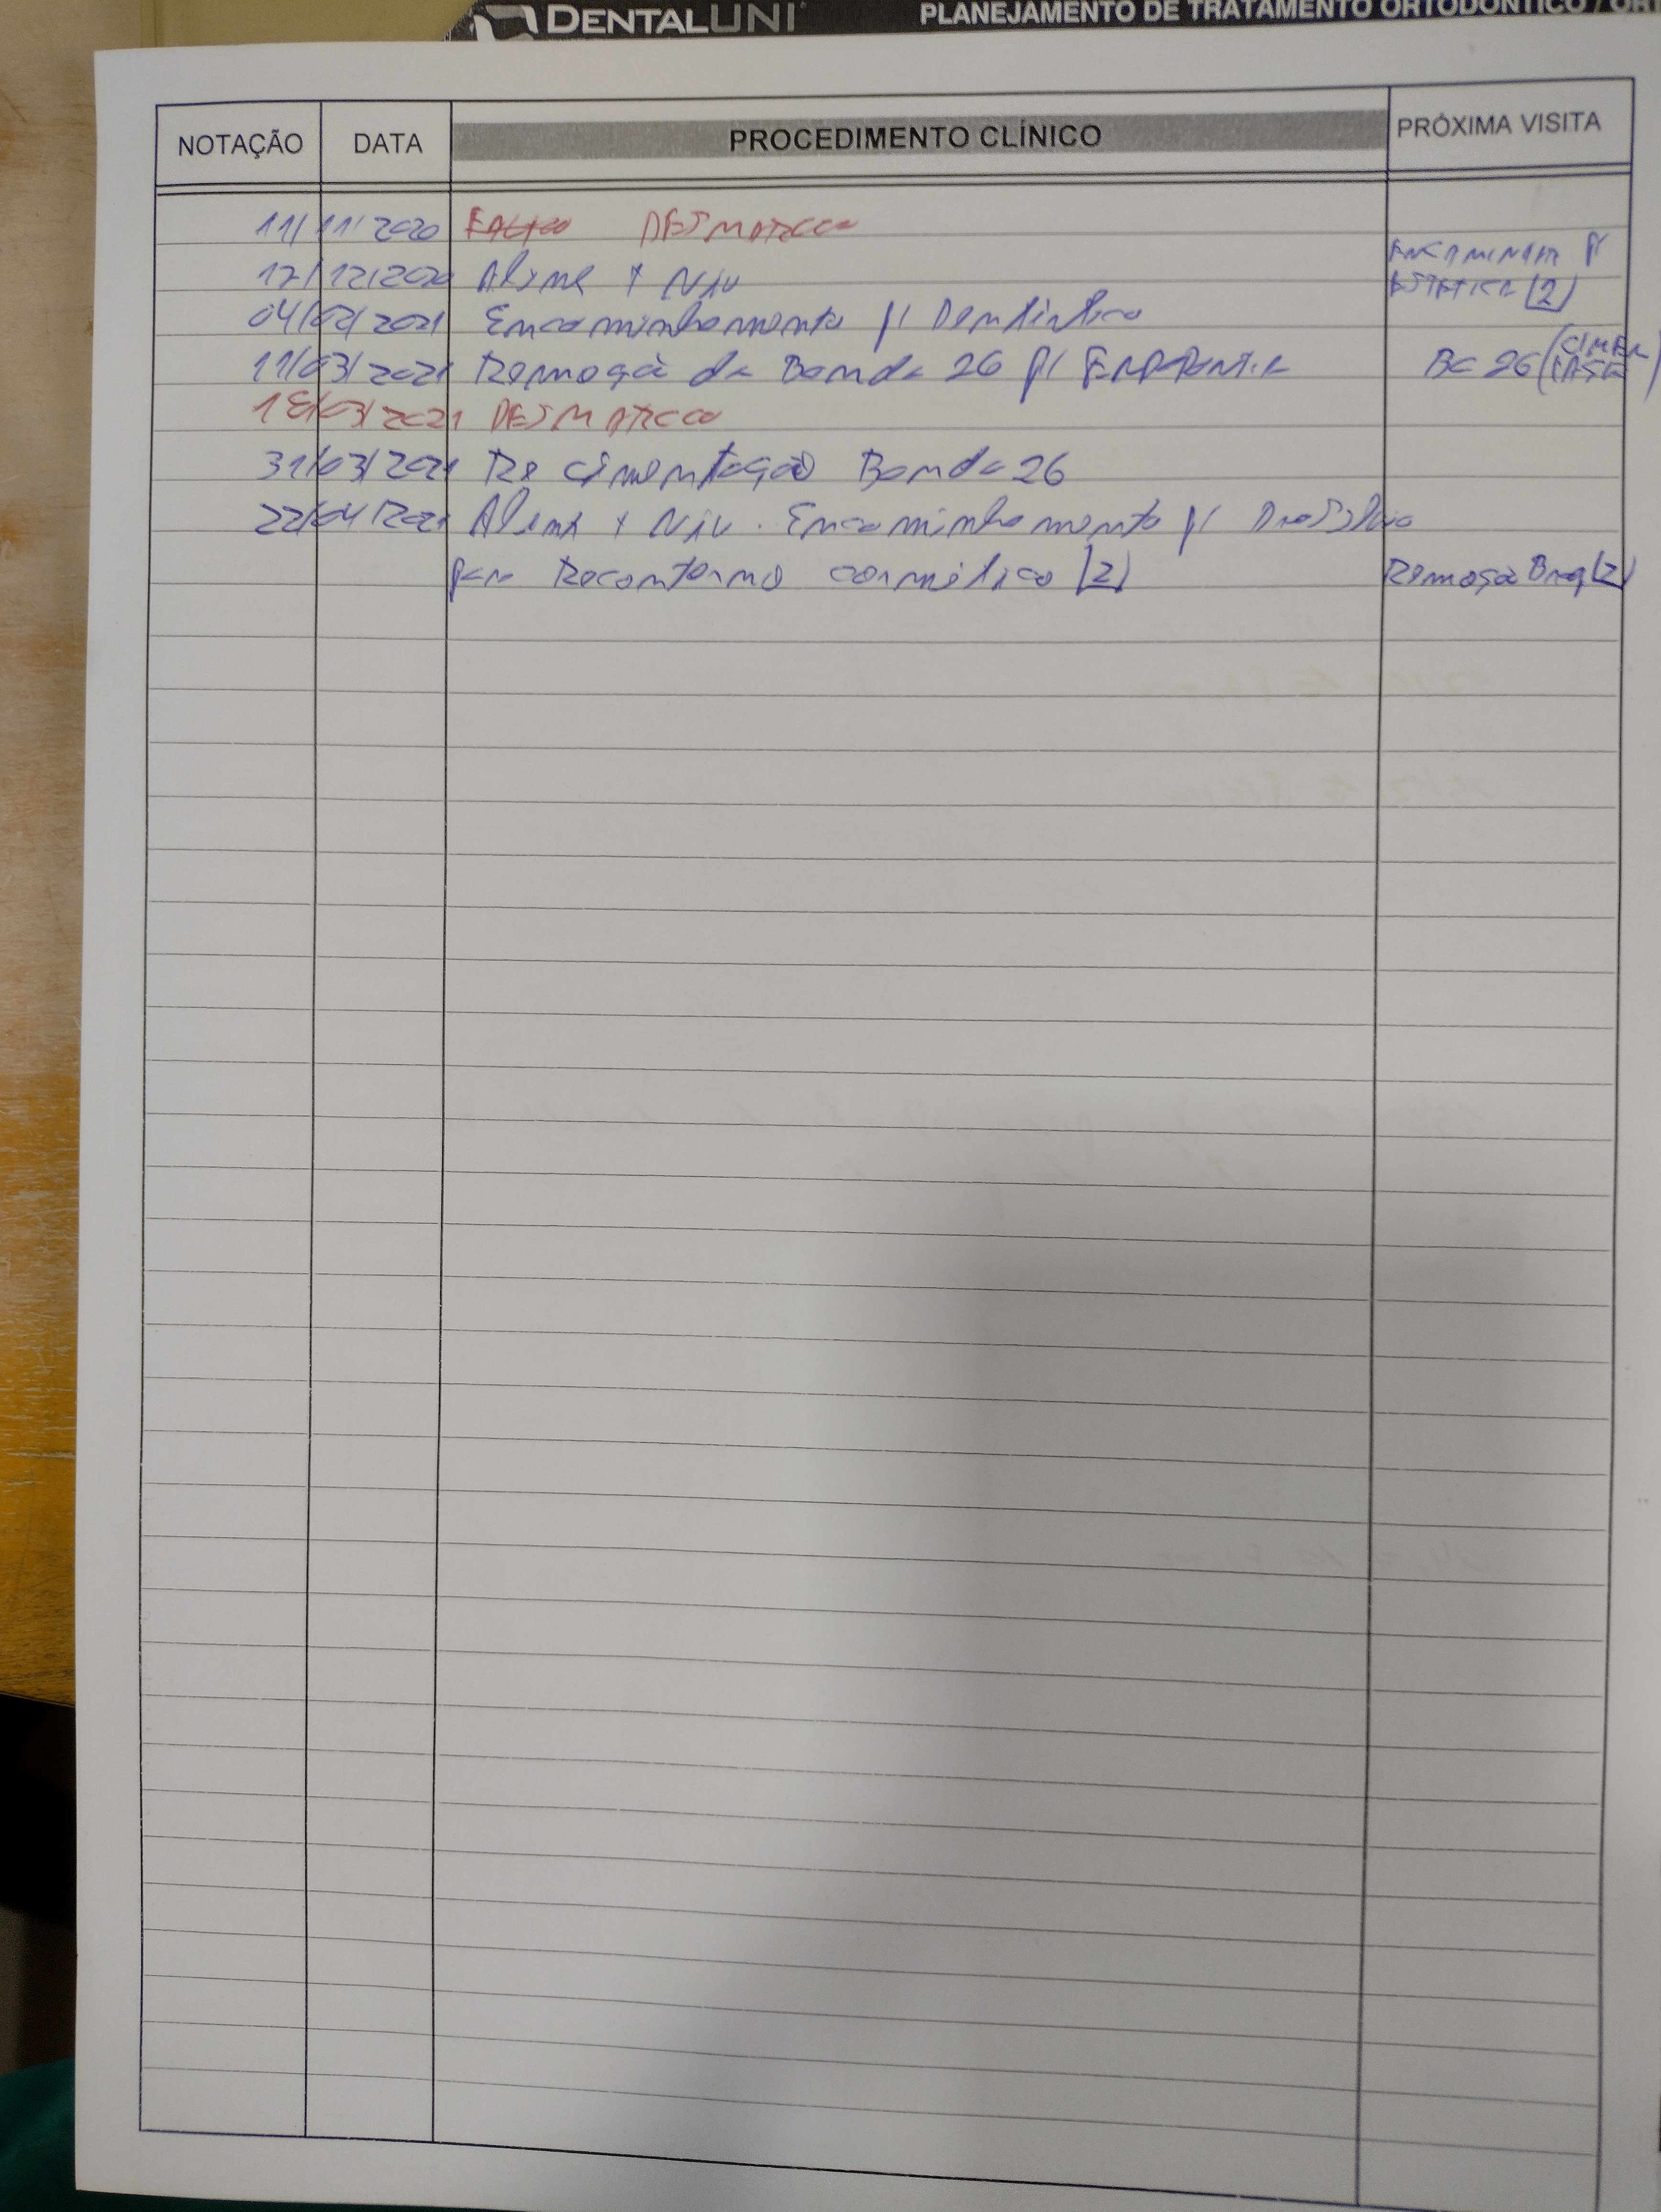 DENTALUNI PLANEJAMENTO DE TRATAMENTO ORTODÔNTICO / ORT
NOTAÇÃO DATA PROCEDIMENTO CLÍNICO PRÓXIMA VISITA
11/11/2020 FALTOU DESMARCOU
17/12/2020 Alinha + Niv ENCAMINHAR P/
ESTÉTICA [2]
04/02/2021 Encaminhamento p/ Dentística
11/03/2021 Remoção da Banda 26 p/ ENDODONTIA BC 26
18/03/2021 DESMARCOU
31/03/2021 Re cimentação Banda 26
22/04/2021 Alinha + Niv. Encaminhamento p/
para Recontorno cosmético [2] Remoção Braq [2]